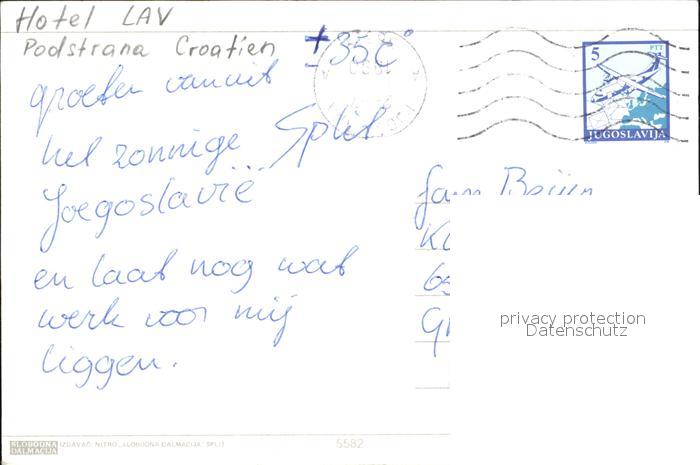 Hotel LAV
Podstrana Croatien
± 35 C°
groeten vanuit
het zonnige Split
Joegoslavië
en laat nog wat
werk voor mij
liggen.
5
PTT
JUGOSLAVIJA
privacy protection
Datenschutz
SLOBODNA
DALMACIJA
IZDAVAČ: NITRO „SLOBODNA DALMACIJA" SPLIT
5582